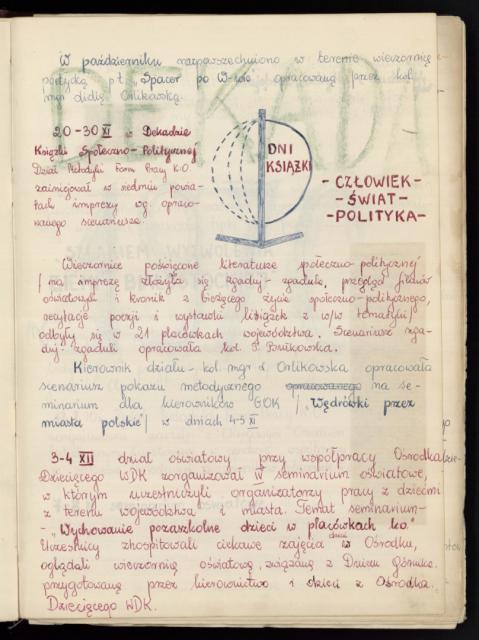 W październiku rozpowszechniono w terenie wieczornicę
poetycką p.t. "Spacer po W-wie" opracowaną przez kol.
mgr Lidię Orlikowską.
20-30 XI w Dekadzie
Książki Społeczno-Politycznej
Dział Metodyki Form Pracy K.O.
zainicjował w siedmiu powia-
tach imprezy wg. opraco-
wanego scenariusza.
DNI
KSIĄŻKI
- CZŁOWIEK-
- ŚWIAT -
- POLITYKA-
Wieczornice poświęcone literaturze społeczno-politycznej
/ na imprezę złożyła się zgaduj-zgadula, przegląd filmów
oświatowych i kronik z bieżącego życia społeczno-politycznego,
recytacje poezji i wystawki książek z w/w tematyki/
odbyły się w 21 placówkach województwa. Scenariusz zga-
duj-zgaduli opracowała kol.
Kierownik działu - kol. mgr L. Orlikowska opracowała
scenariusz pokazu metodycznego opracowanego na se-
minarium dla kierowników GOK / "Wędrówki przez
miasta polskie"/ w dniach 4-5 XI
3-4 XII dział oświatowy przy współpracy Ośrodka
Dziecięcego WDK zorganizował IV seminarium oświatowe,
w którym uczestniczyli organizatorzy pracy z dziećmi
z terenu województwa i miasta. Temat seminarium-
- "Wychowanie pozaszkolne dzieci w placówkach k.o."
Uczestnicy zhospitowali ciekawe zajęcia dzieci w Ośrodku,
oglądali wieczornicę oświatową, związaną z Dniem Górnika.
przygotowaną przez kierownictwo i dzieci z Ośrodka.
Dziecięcego WDK.
DEKADA